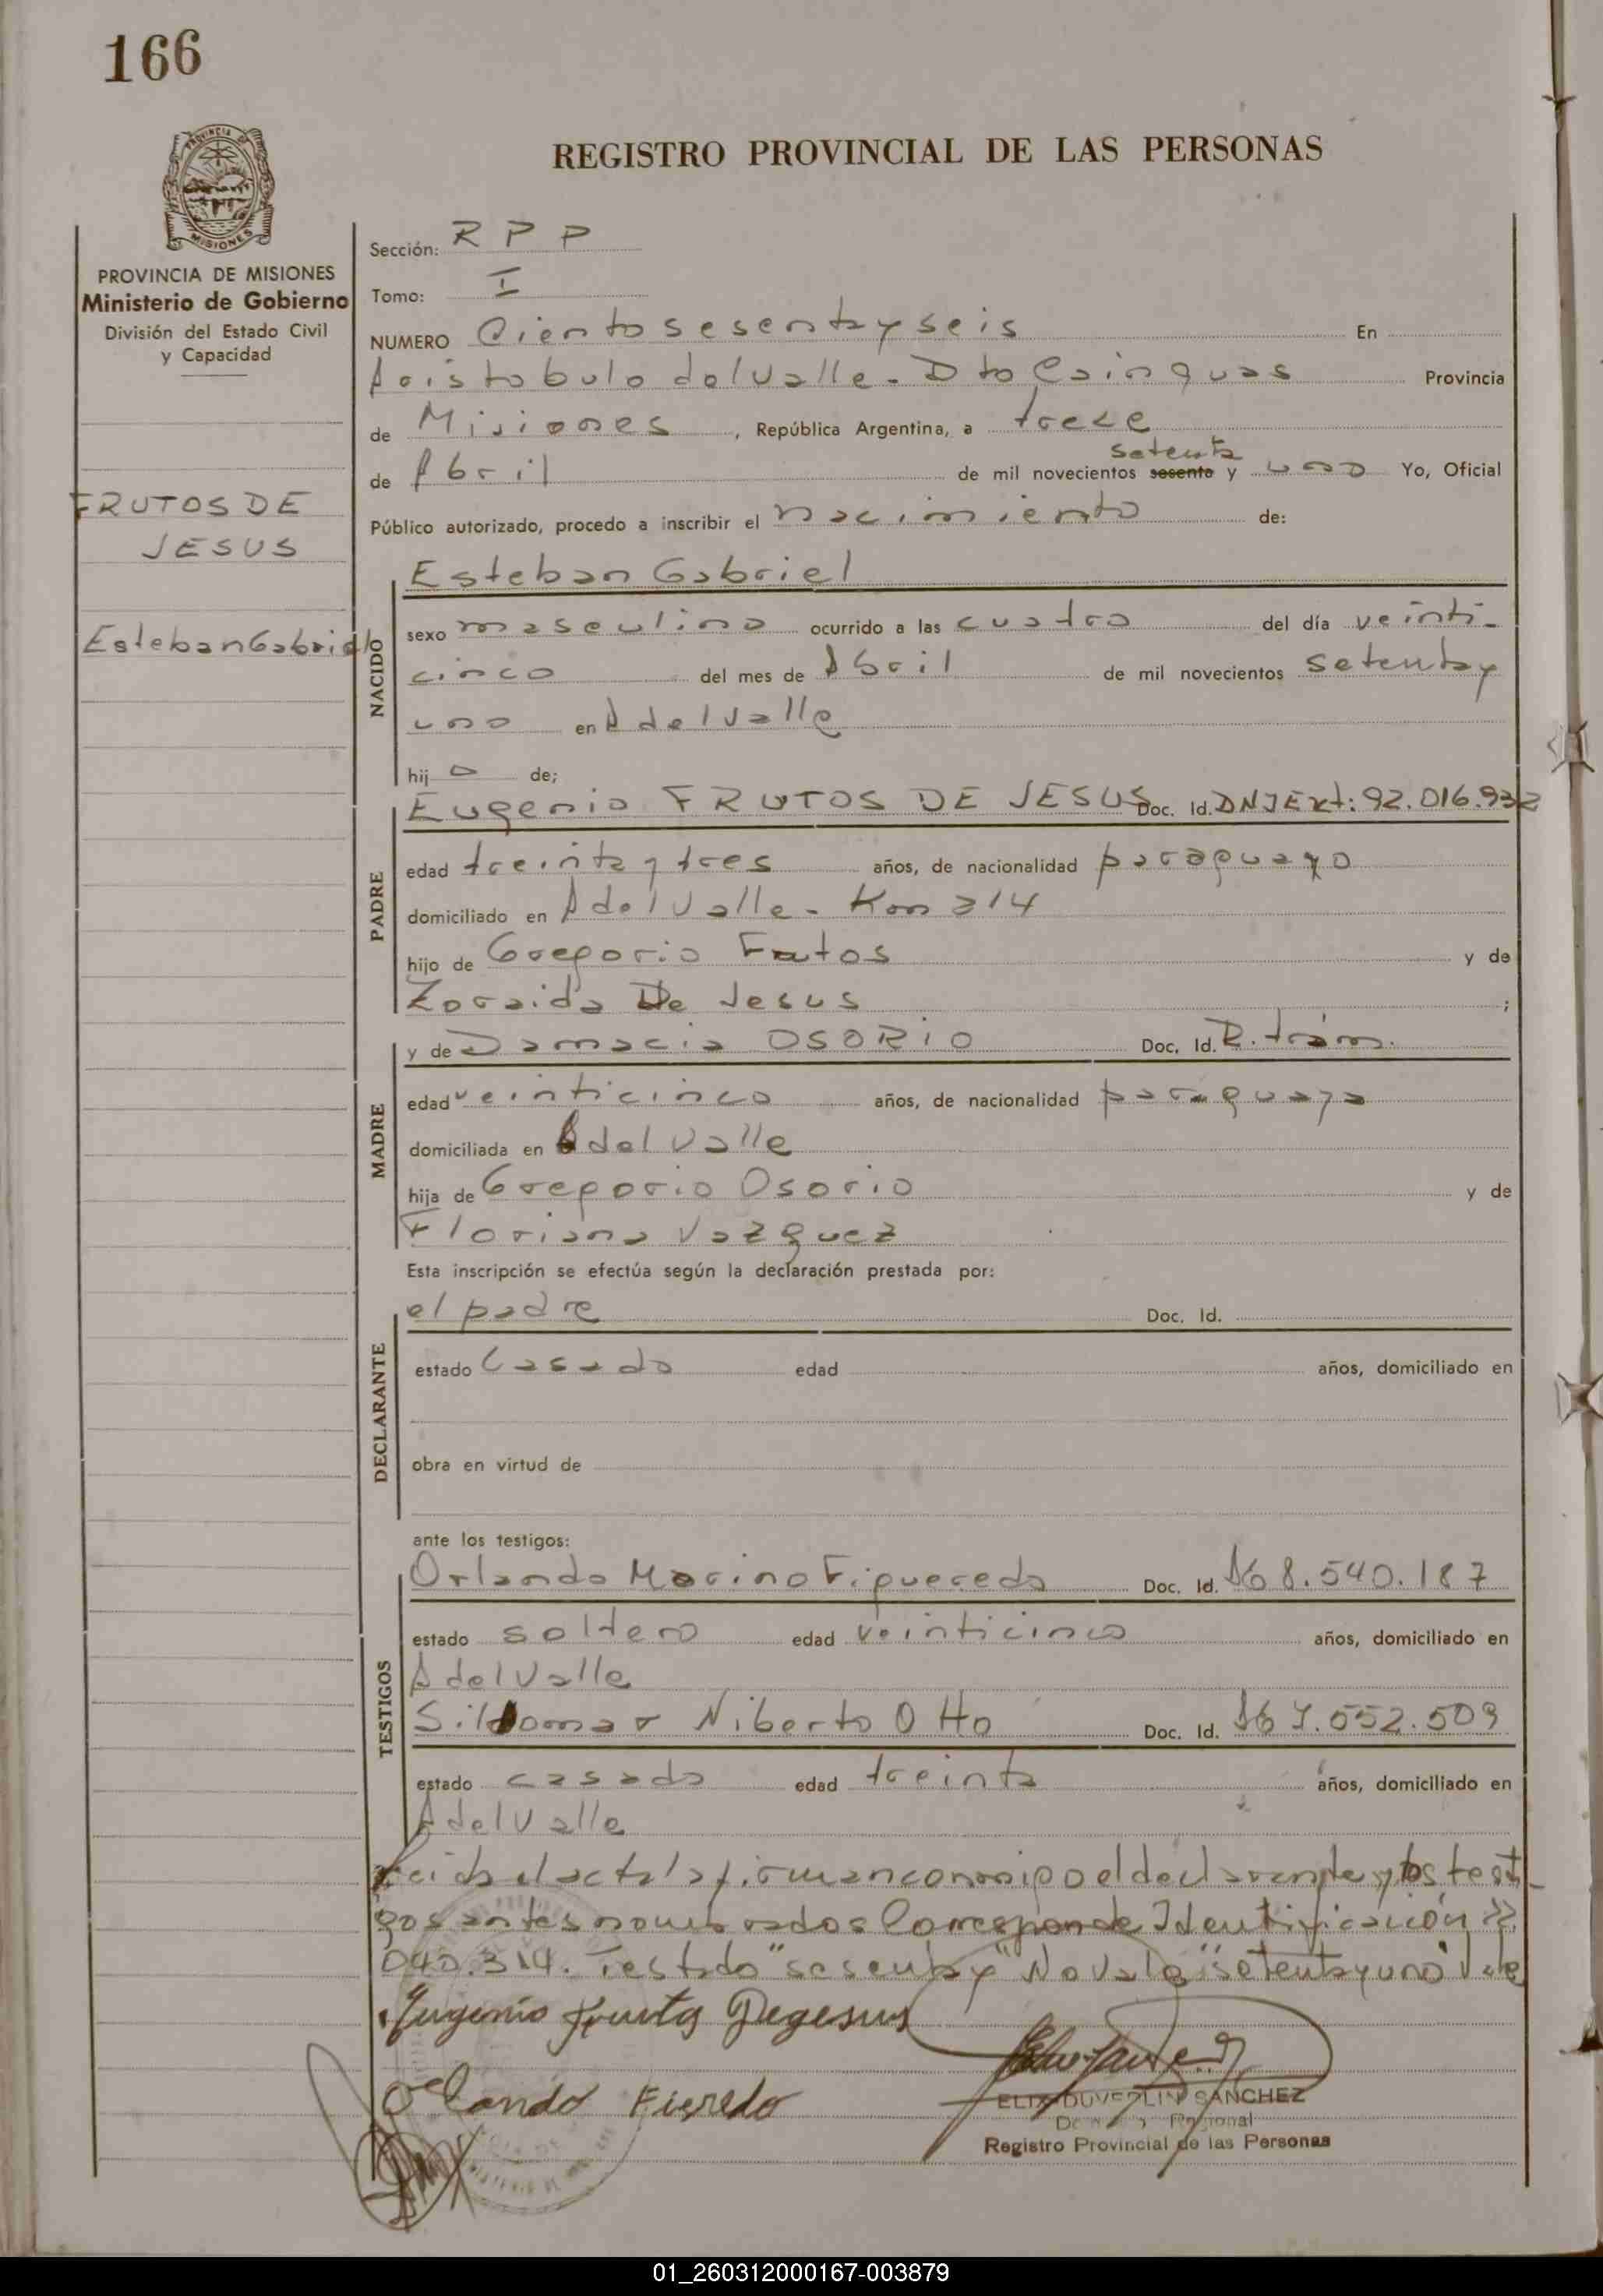 166
REGISTRO PROVINCIAL DE LAS PERSONAS
PROVINCIA DE MISIONES
MISIONES
PROVINCIA DE MISIONES
Ministerio de Gobierno
División del Estado Civil
y Capacidad
FRUTOS DE
JESUS
Esteban Gabriel
Sección: R P P
Tomo: I
NUMERO Ciento sesenta y seis En
Aristobulo del Valle - Dto Cainguas Provincia
de Misiones, República Argentina, a trece
setenta
de Abril de mil novecientos sesenta y uno Yo, Oficial
Público autorizado, procedo a inscribir el nacimiento de:
NACIDO
Esteban Gabriel
sexo masculino ocurrido a las cuatro del día veinti-
cinco del mes de Abril de mil novecientos setenta y
uno en A del Valle
hijo de;
PADRE
Eugenio FRUTOS DE JESUS Doc. Id. DNI Ext: 92.016.932
edad treinta y tres años, de nacionalidad paraguayo
domiciliado en A del Valle - Km 314
hijo de Gregorio Frutos y de
Zoraida De Jesus ;
MADRE
y de Damacia OSORIO Doc. Id. R. trám.
edad veinticinco años, de nacionalidad paraguaya
domiciliada en A del Valle
hija de Gregorio Osorio y de
Floriana Vazquez
Esta inscripción se efectúa según la declaración prestada por:
DECLARANTE
el padre Doc. Id.
estado Casado edad años, domiciliado en
obra en virtud de
ante los testigos:
TESTIGOS
Orlando Marino Figueredo Doc. Id. 8.540.187
estado soltero edad veinticinco años, domiciliado en
A del Valle
Niberto Otto Doc. Id. 7.552.509
estado casado edad treinta años, domiciliado en
A del Valle
Leida el acta la firman conmigo el declarante y los testi-
gos antes nombrados Corresponde Identificación
040.314. Testado "sesenta y" No Vale "setenta y uno" Vale
Eugenio Frutos Degesus
Orlando Figredo
SANCHEZ
Registro Provincial de las Personas
01_260312000167-003879